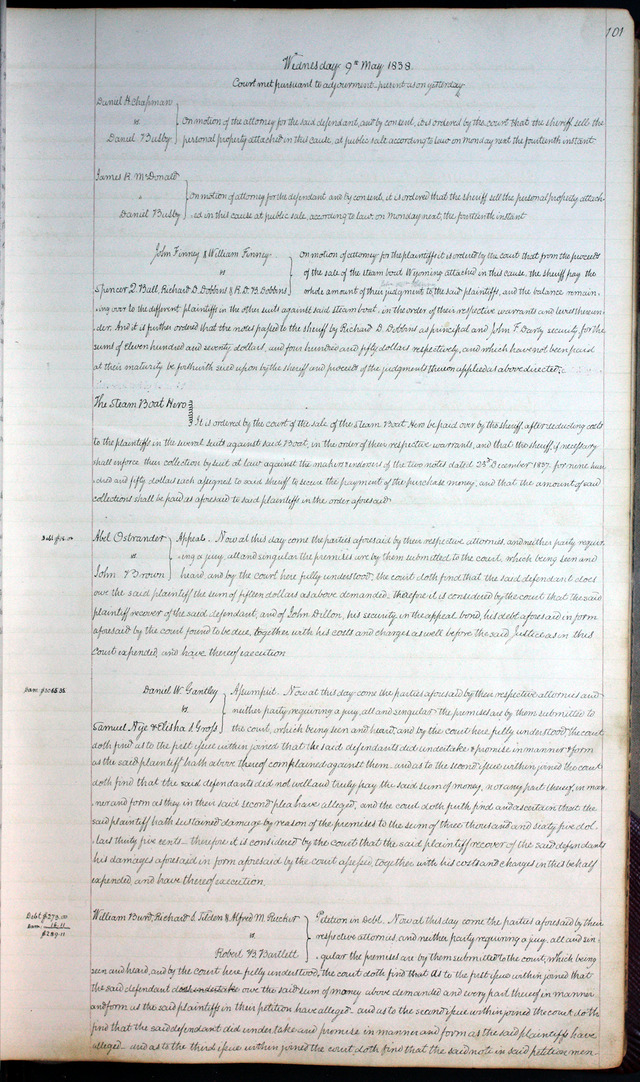 101
Wednesday 9th May 1838
Court met pursuant to adjournment present as on yesterday
Daniel H. Chapman
vs
Daniel T Busby
On motion of the attorney for the said defendant, and by consent, it is ordered by the court that the sheriff sell the
personal property attached in this cause, at public sale according to law on monday next the fourteenth instant
James R. McDonald
Daniel Busby
On motion of attorney for the defendant and by consent, it is ordered that the sheriff sell the personal property attach-
ed in this cause at public sale, according to law on Monday next, the fourteenth instant
John Finney & William Finney
vs
Spencer Q. Ball, Richard D. Dobbins & R. D. B. Dobbins
On motion of attorney for the plaintiffs it is ordered by the court that from the proceeds
of the sale of the steam boat Wyoming attached in this cause, the sheriff pay the
whole amount of their judgment to the said plaintiffs, and the balance remain-
ing over to the different plaintiffs in the other suits against said steam boat, in the order of their respective warrants and levies thereun-
der. And it is further ordered that the notes passed to the sheriff by Richard D. Dobbins as principal and John F. Darby security for the
sums of eleven hundred and seventy dollars, and four hundred and fifty dollars respectively, and which have not been paid
at their maturity be forthwith sued upon by the sheriff and proceeds of the judgments thereon applied as above directed.
The Steam Boat Hero
It is ordered by the court of the sale of the Steam Boat Hero be paid over by the sheriff, after deducting costs
to the plaintiffs in the several suits against said Boat, in the order of their respective warrants, and that the sheriff, if necessary
shall enforce their collection by suit at law against the makers & endorsers of the two notes dated 23d December 1837. for nine hun-
dred and fifty dollars each assigned to said sheriff to secure the payment of the purchase money, and that the amount of said
collections shall be paid as aforesaid to said plaintiffs in the order aforesaid
Abel Ostrander
vs
John T Brown
Appeal. Now at this day come the parties aforesaid by their respective attornies, and neither party requir-
ing a jury, all and singular the premises are by them submitted to the court, which being seen and
heard, and by the court here fully understood, the court doth find that the said defendant does
owe the said plaintiff the sum of fifteen dollars as above demanded. Therefore it is considered by the court that the said
plaintiff recover of the said defendant, and of John Dillon, his security in the appeal bond, his debt aforesaid in form
aforesaid by the court found to be due, together with his costs and charges as well before the said Justice as in this
court expended, and have thereof execution
Dam $3065.35
Daniel W. Gantley
vs
Samuel Nye & Elisha S. Gross
Assumpsit. Now at this day come the parties aforesaid by their respective attornies and
neither party requiring a jury, all and singular the premises are by them submitted to
the court, which being seen and heard, and by the court here fully understood, the court
doth find as to the first issue within joined that the said defendant did undertake & promise in manner & form
as the said plaintiff hath above thereof complained against them. and as to the second issue within joined the court
doth find that the said defendants did not well and truly pay the said sum of money, nor any part thereof, in man-
ner and form as they in their said second plea have alleged, and the court doth further find and ascertain that the
said plaintiff hath sustained damage by reason of the premises to the sum of three thousand and sixty five dol-
lars thirty five cents. therefore it is considered by the court that the said plaintiff recover of the said defendants
his damages aforesaid in form aforesaid by the court assessed, together with his costs and charges in this behalf
expended, and have thereof execution.
Debt $273.00
Dam 16.11
$289.11
William Burd, Richard S. Tilden & Alfred M. Rucker
vs
Robert B. Bartlett
Petition in Debt. Now at this day come the parties aforesaid by their
respective attornies, and neither party requiring a jury, all and sin-
gular the premises are by them submitted to the court, which being
seen and heard, and by the court here fully understood, the court doth find that as to the first issue within joined that
the said defendant does owe the said sum of money above demanded and every part thereof in manner
and form as the said plaintiffs in their petition have alleged. and as to the second issue within joined the court doth
find that the said defendant did undertake and promise in manner and form as the said plaintiffs have
alleged. and as to the third issue within joined the court doth find that the said note in said petition men-